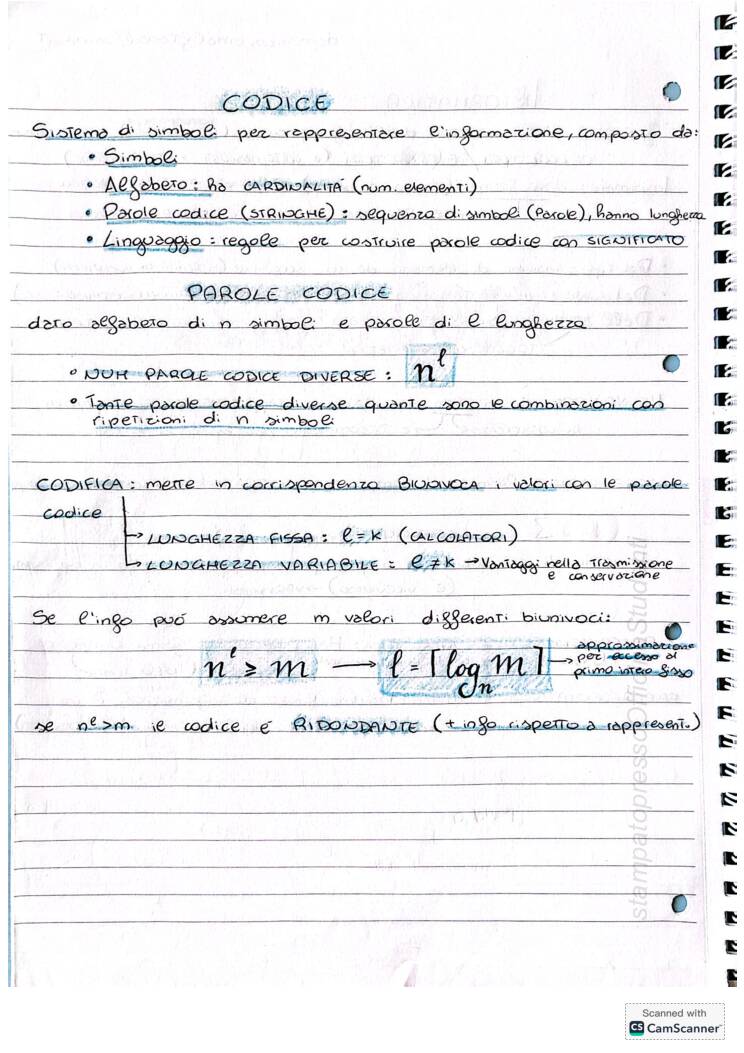 CODICE
Sistema di simboli per rappresentare l'informazione, composto da:
• Simboli
• Alfabeto: ha CARDINALITÁ (num. elementi)
• Parole codice (STRINGHE): sequenza di simboli (Parole), hanno lunghezza
• Linguaggio: regole per costruire parole codice con SIGNIFICATO
PAROLE CODICE
dato alfabeto di n simboli e parole di l lunghezza
• NUM PAROLE CODICE DIVERSE: n^l
• Tante parole codice diverse quante sono le combinazioni con
ripetizioni di n simboli
CODIFICA: mette in corrispondenza BIUNIVOCA i valori con le parole
codice
→ LUNGHEZZA FISSA: l=k (CALCOLATORI)
→ LUNGHEZZA VARIABILE: l≠k → Vantaggi nella Trasmissione
e conservazione
Se l'info può assumere m valori differenti biunivoci:
n^l ≥ m → l = ⌈log_n m⌉ → approssimazione
per eccesso al
primo intero fisso
se n^l>m il codice é RIDONDANTE (+ info rispetto a rappresent.)
stampatopressoOfficinaStudenti
Scanned with
CS CamScanner